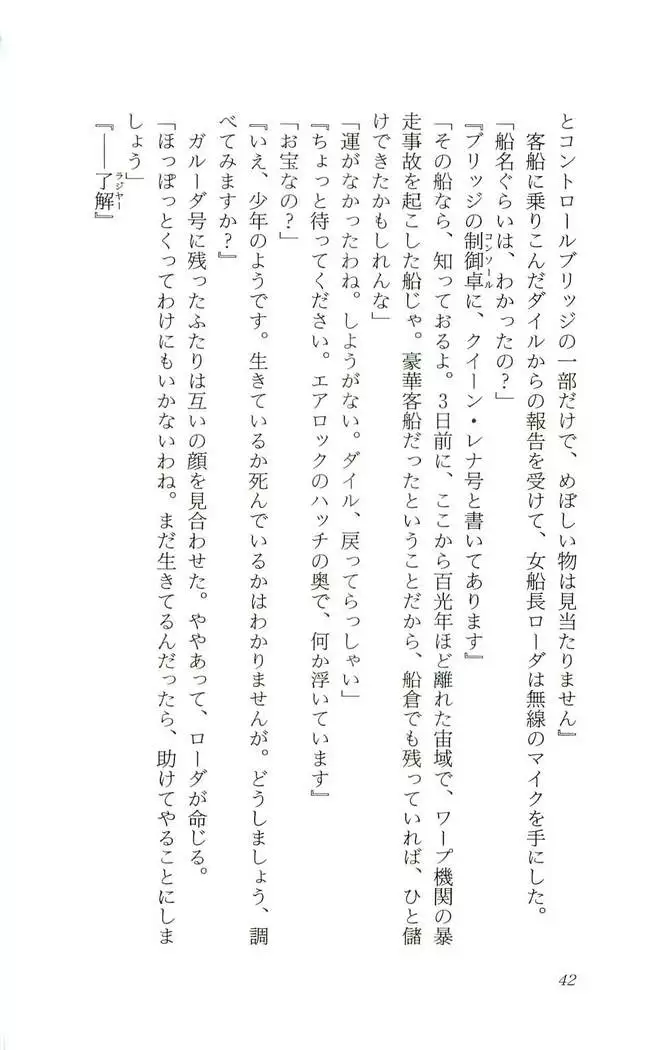 とコントロールブリッジの一部だけで、めぼしい物は見当たりません』
　客船に乗りこんだダイルからの報告を受けて、女船長ローダは無線のマイクを手にした。
「船名ぐらいは、わかったの？」
『ブリッジの制御卓コンソールに、クイーン・レナ号と書いてあります』
「その船なら、知っておるよ。3日前に、ここから百光年ほど離れた宙域で、ワープ機関の暴
走事故を起こした船じゃ。豪華客船だったということだから、船倉でも残っていれば、ひと儲
けできたかもしれんな」
「運がなかったわね。しようがない。ダイル、戻ってらっしゃい」
『ちょっと待ってください。エアロックのハッチの奥で、何か浮いています』
「お宝なの？」
『いえ、少年のようです。生きているか死んでいるかはわかりませんが。どうしましょう、調
べてみますか？』
　ガルーダ号に残ったふたりは互いの顔を見合わせた。ややあって、ローダが命じる。
「ほっぽっとくってわけにもいかないわね。まだ生きてるんだったら、助けてやることにしま
しょう」
『――了解ラジャー』
42